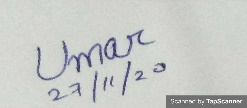 Umar
27/11/20
Scanned by TapScanner